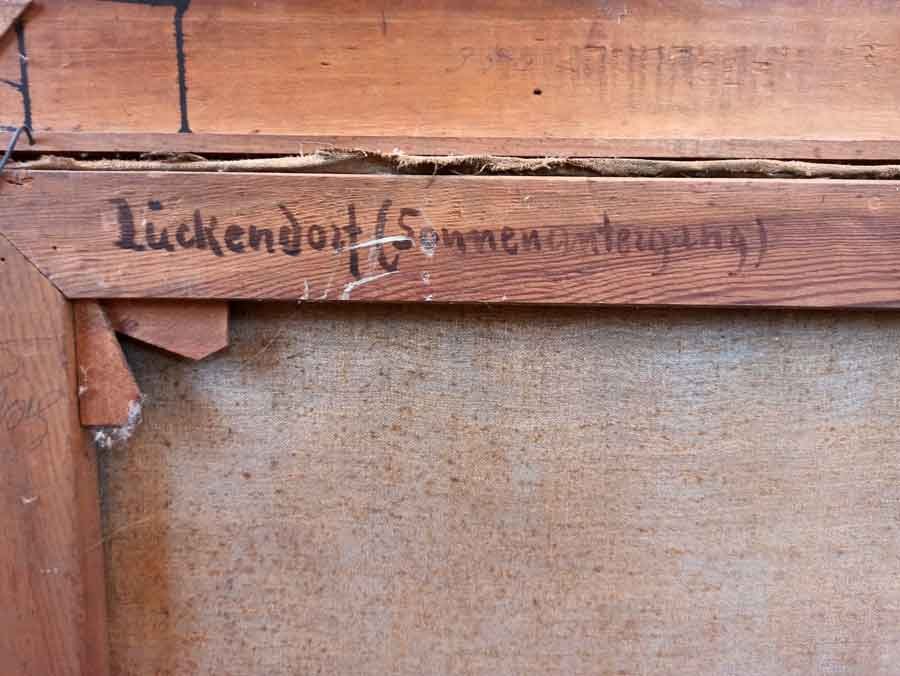 Lückendorf (Sonnenuntergang)